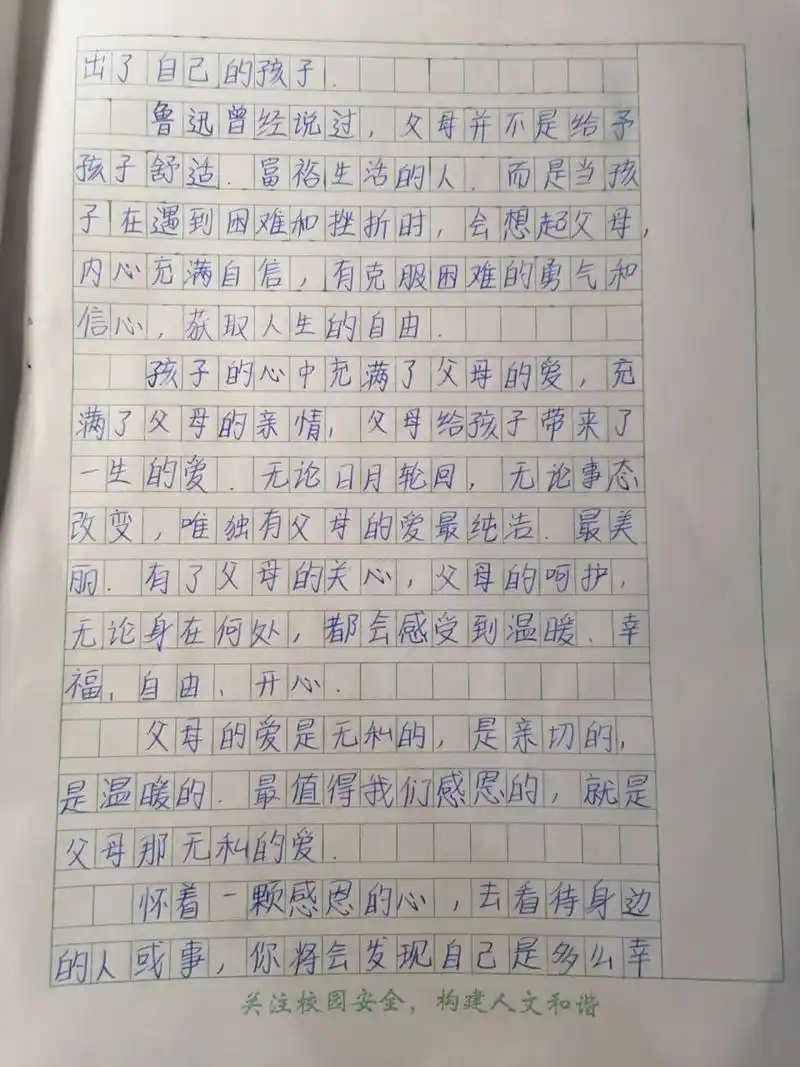 出了自己的孩子.
鲁迅曾经说过,父母并不是给予
孩子舒适.富裕生活的人.而是当孩
子在遇到困难和挫折时,会想起父母,
内心充满自信,有克服困难的勇气和
信心,获取人生的自由.
孩子的心中充满了父母的爱,充
满了父母的亲情,父母给孩子带来了
一生的爱.无论日月轮回,无论事态
改变,唯独有父母的爱最纯洁.最美
丽.有了父母的关心,父母的呵护,
无论身在何处,都会感受到温暖、幸
福、自由、开心.
父母的爱是无私的,是亲切的,
是温暖的.最值得我们感恩的,就是
父母那无私的爱.
怀着一颗感恩的心,去看待身边
的人或事,你将会发现自己是多么幸
关注校园安全,构建人文和谐